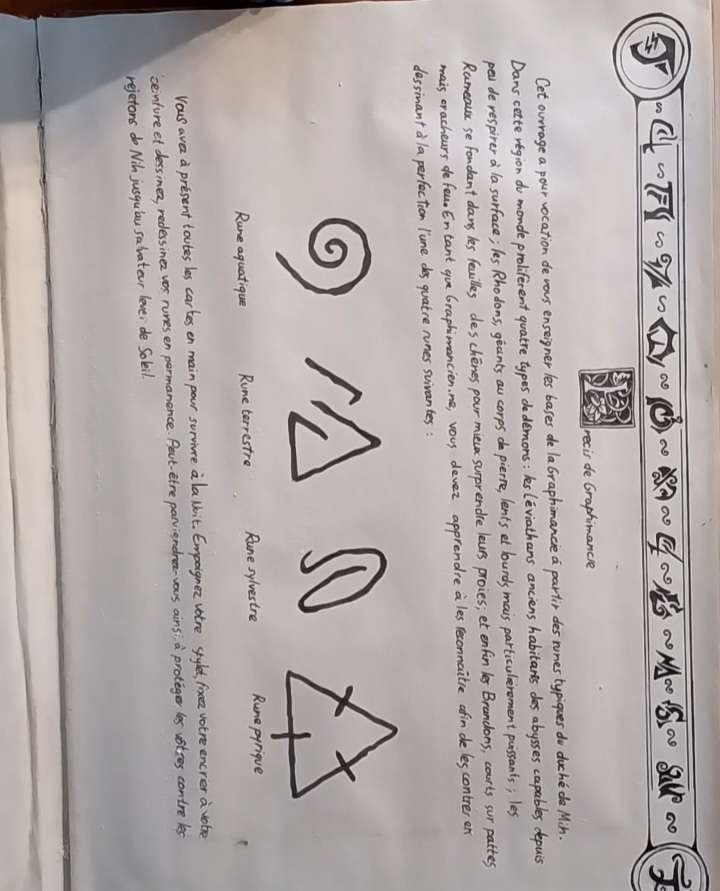 Precis de Graphimancie
Cet ouvrage a pour vocation de vous enseigner les bases de la Graphimancie à partir des runes typiques du duché de Mih.
Dans cette région du monde prolifèrent quatre types de démons : les Léviathans anciens habitants des abysses capables depuis
peu de respirer à la surface ; les Rhodons, géants au corps de pierre, lents et lourds mais particulièrement puissants ; les
Rameaux se fondant dans les feuilles des chênes pour mieux surprendre leurs proies ; et enfin les Brandons, courts sur pattes
mais cracheurs de feu. En tant que Graphimancien.ne, vous devez apprendre à les reconnaître afin de les contrer en
dessinant à la perfection l'une des quatre runes suivantes :
Rune aquatique Rune terrestre Rune sylvestre Rune pyrique
Vous avez à présent toutes les cartes en main pour survivre à la Nuit. Empoignez votre stylet, fixez votre encrier à votre
ceinture et dessinez, redessinez vos runes en permanence. Peut-être parviendrez-vous ainsi à protéger les vôtres contre les
rejetons de Nih jusqu'au salvateur lever de Soleil.